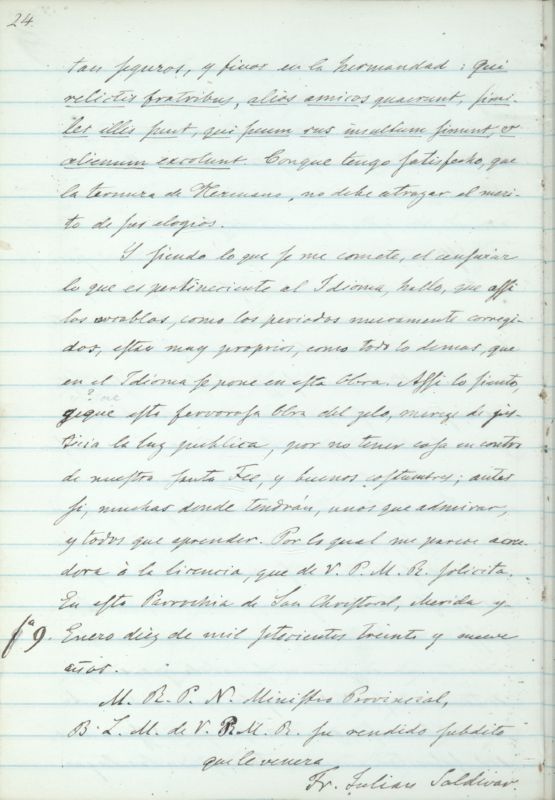 24.
tan seguros, y finos en la hermandad: Qui
relictis fratribus, alios amicos quaerunt, simi-
les illis sunt, qui suum rus insultum sinunt, &
alienum excolunt. Conque tengo satisfecho, que
la ternura de Hermano, no debe atrazar el meri-
to de sus elogios.
Y siendo lo que se me comete, el censurar
lo que es pertineciente al Idioma, hallo, que assi
los vocablos, como los periodos nuevamente corregi-
dos, estan muy proprios, como todo lo demas, que
en el Idioma se pone en esta Obra. Assi lo siento
que esta fervorosa Obra del zelo, merece de jus-
ticia la luz publica, por no tener cosa en contra
de nuestra santa Fee, y buenos costumbres; antes
si, muchas donde tendrán, unos que admirar,
y todos que aprender. Por lo qual me parece acree-
dora à la licencia, que de V. P. M. R. solicita.
En esta Parrochia de San Christoval, Merida y
fª 9. Enero diez de mil setecientos treinta y nueve
años.
M. R. P. N. Ministro Provincial,
B. L. M. de V. P. M. R. su rendido subdito
que le venera
Fr. Julian Saldivar.